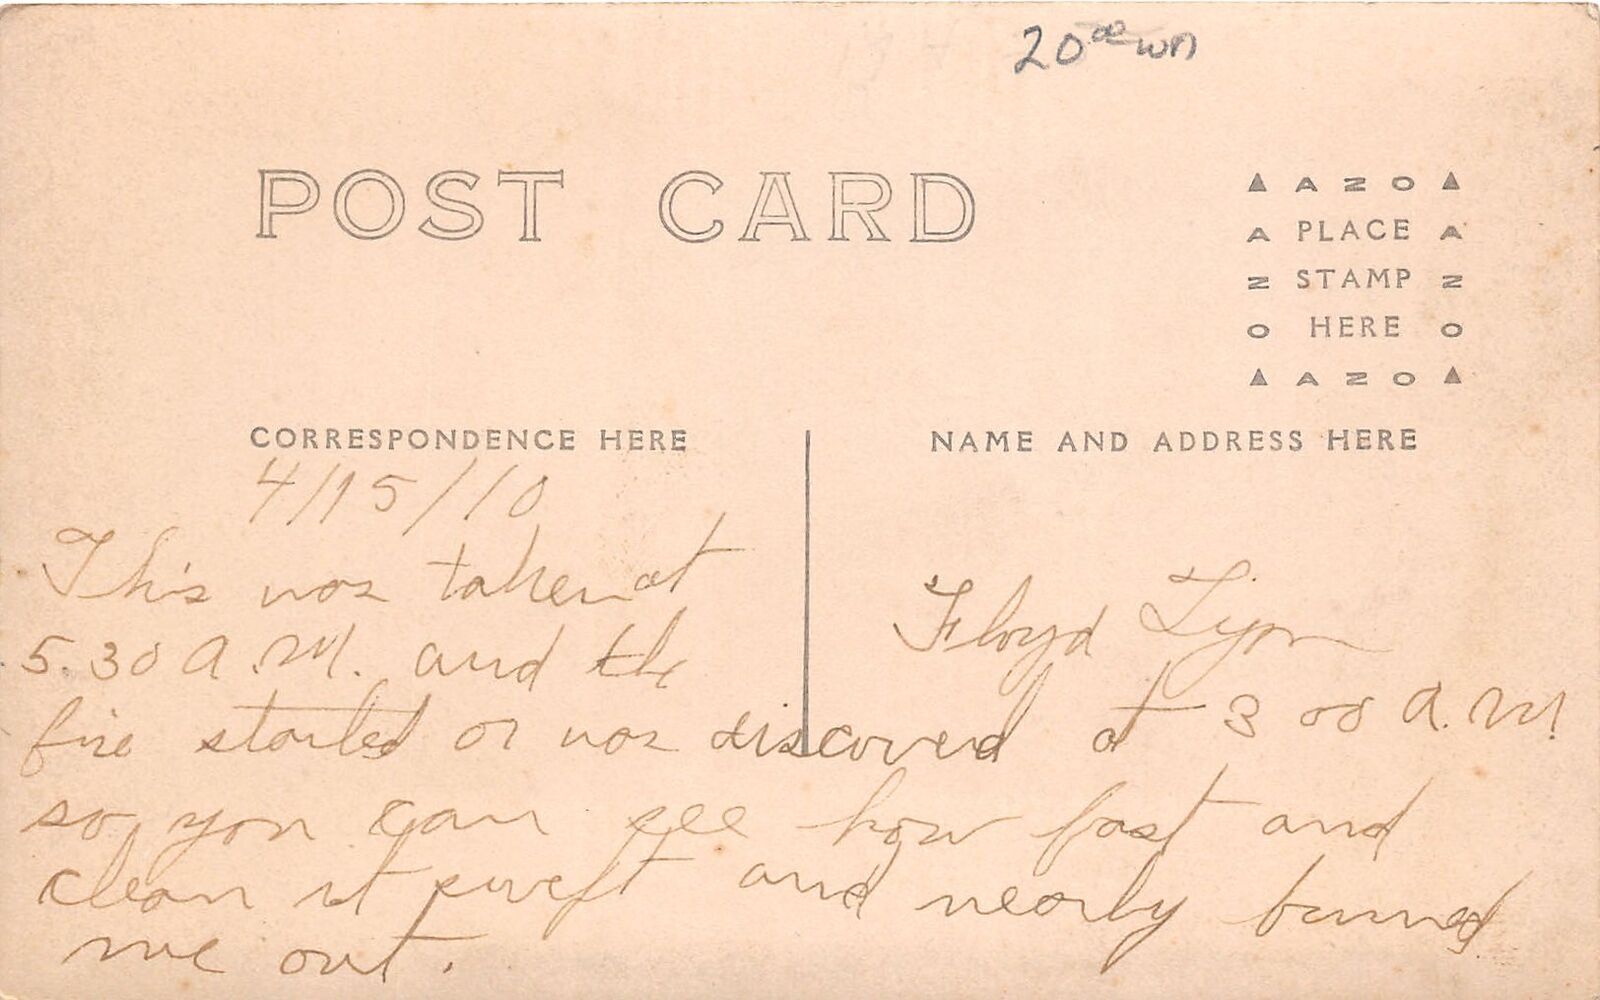 20.00 wn
POST CARD
▲ A Z O ▲
A PLACE A
Z STAMP Z
O HERE O
▲ A Z O ▲
CORRESPONDENCE HERE
NAME AND ADDRESS HERE
4/15/10
This was taken at
5.30 A.M. and the
Floyd Lyon
fire started or was discovered at 3 00 A.M.
so you can see how fast and
clean it sweft and nearly burned
me out.